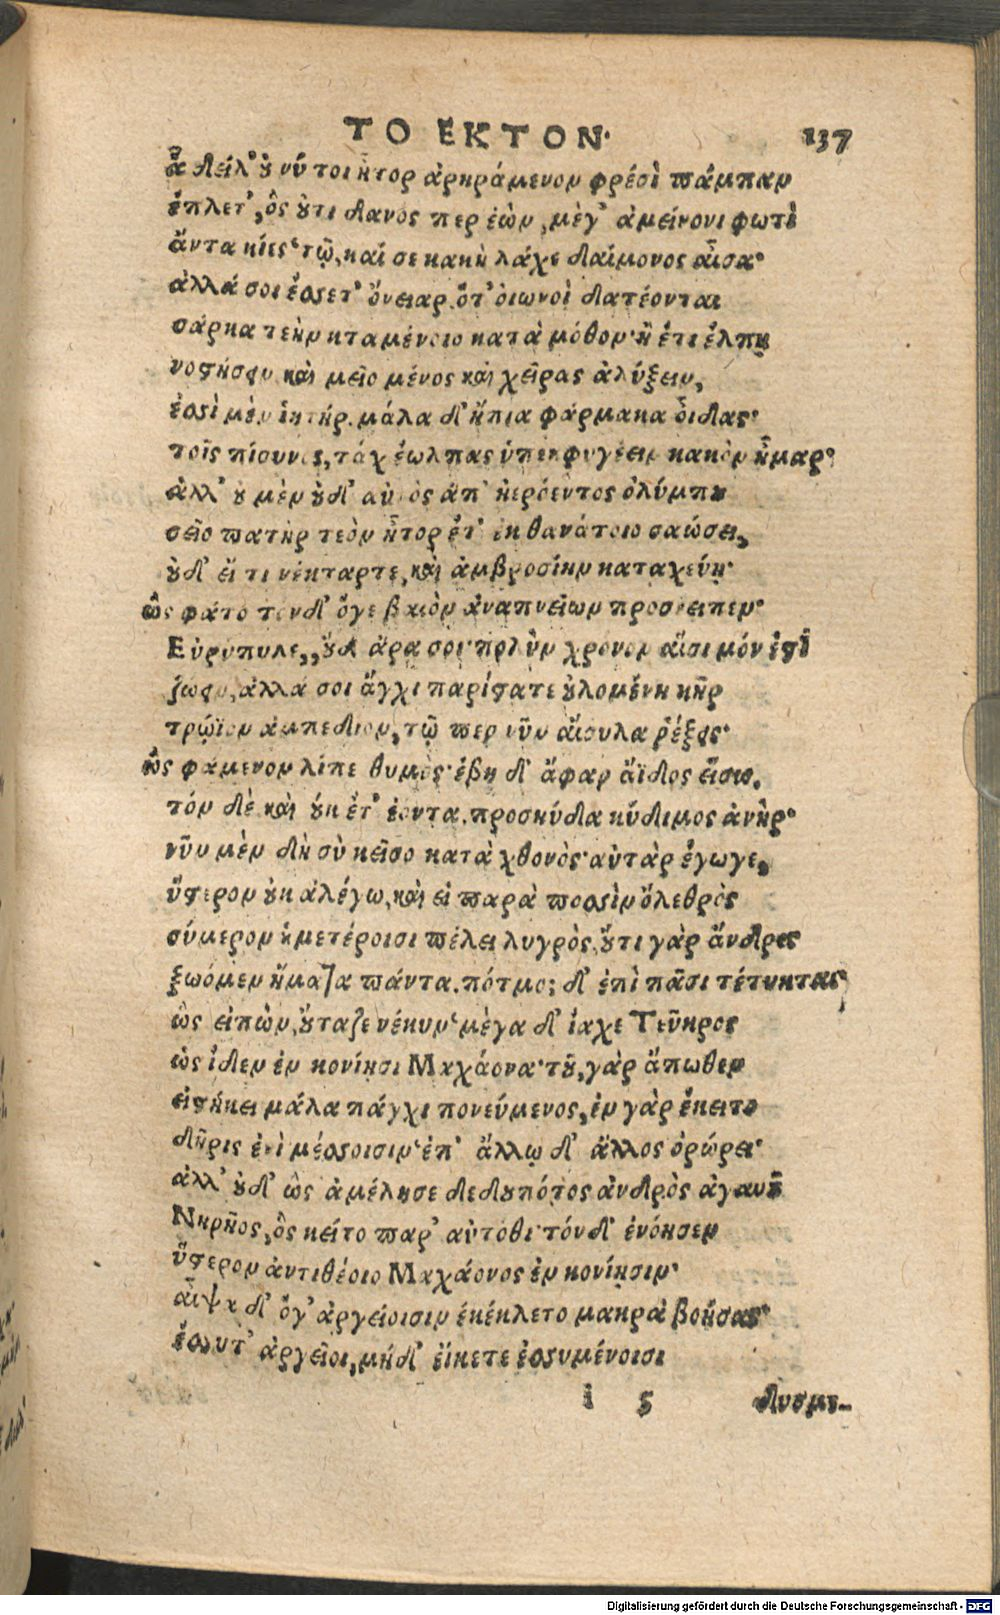 ΤΟ ΕΚΤΟΝ· 137
ἆ δείλ' οὔ νύ τοι ἦτορ ἀρηράμενον φρέσὶ πάμπαν
ἔπλετ', ὃς οὔτι δανός περ ἐὼν, μὲγ' ἀμείνονι φωτὶ
ἄντα κίες· τῷ, καί σε κακὴ λάχε δαίμονος αἶσα·
ἀλλά σοι ἔσσετ' ὄνειαρ. ὅτ' ὀιωνοὶ δατέονται
σάρκα τεὴν κταμένοιο κατὰ μόθον· ἢ ἔτι ἔλπῃ
νοστήσειν καὶ μεῖο μένος καὶ χεῖρας ἀλύξειν,
ἐσσὶ μὲν ἰητήρ. μάλα δ' ἤπια φάρμακα οἶδας·
τοῖς πίσυνος, τάχ' ἔωλπας ὑπεκφυγέειν κακὸν ἦμαρ·
ἀλλ' οὐ μὲν οὐδ' αὐτὸς ἀπ' ἠερόεντος ὀλύμπου
σεῖο πατὴρ τεὸν ἦτορ ἔτ' ἐκ θανάτοιο σαώσει,
οὐδ' εἴ τι νέκταρτε, καὶ ἀμβροσίην καταχεύῃ·
ὣς φάτο τὸν δ' ὅγε βαιὸν ἀναπνείων προσέειπεν·
Εὐρύπυλε, οὐδ' ἄρα σοι πολὺν χρόνον αἴσιμόν ἐστὶ
ζωειν, ἀλλά σοι ἄγχι παρίστατε οὐλομένη κὴρ
τρώϊον ἀμπεδίον, τῷ περ νῦν αἴσυλα ῥέξεις·
ὣς φάμενον λίπε θυμὸς· ἔβη δ' ἄφαρ ἄϊδος εἴσω.
τόν δὲ καὶ οὐκ ἔτ' ἐόντα. προσηύδα κύδιμος ἀνὴρ·
νῦν μὲν δὴ σὺ κεῖσο κατὰ χθονὸς· αὐτὰρ ἔγωγε,
ὕστερον οὐκ ἀλέγω, καὶ εἰ παρὰ ποσσὶν ὄλεθρὸς
σύμερον ἡμετέροισι πέλει λυγρὸς. οὔτι γὰρ ἄνδρες
ξωόμεν ἤματα πάντα. πότμος δ' ἐπὶ πᾶσι τέτυκται
ὣς εἰπὼν, οὔταζε νέκυν· μὲγα δ' ἴαχε Τεῦκρος
ὡς ἴδεν ἐν κονίησι Μαχάονα· τοῦ, γὰρ ἄπωθεν
εἱστήκει μάλα πάγχι πονεύμενος, ἐν γὰρ ἔκειτο
δῆρις ἐνὶ μέσσοισιν· ἐπ' ἄλλῳ δ' ἄλλος ὀρώρει·
ἀλλ' οὐδ' ὣς ἀμέλησε δεδουπότος ἀνδρὸς ἀγαυοῦ
Νηρῆος, ὃς κεῖτο παρ' αὐτόθι· τόν δ' ἐνόησεν
ὕστερον ἀντιθέοιο Μαχάονος ἐν κονίῃσιν·
αἶψα δ' ὅγ' ἀργείοισιν ἐκέκλετο μακρὰ βοήσας·
ἔσσυτ' ἀργεῖοι, μήδ' εἴκετε ἐσσυμένοισι
i 5 δυσμε-
Digitalisierung gefördert durch die Deutsche Forschungsgemeinschaft - DFG